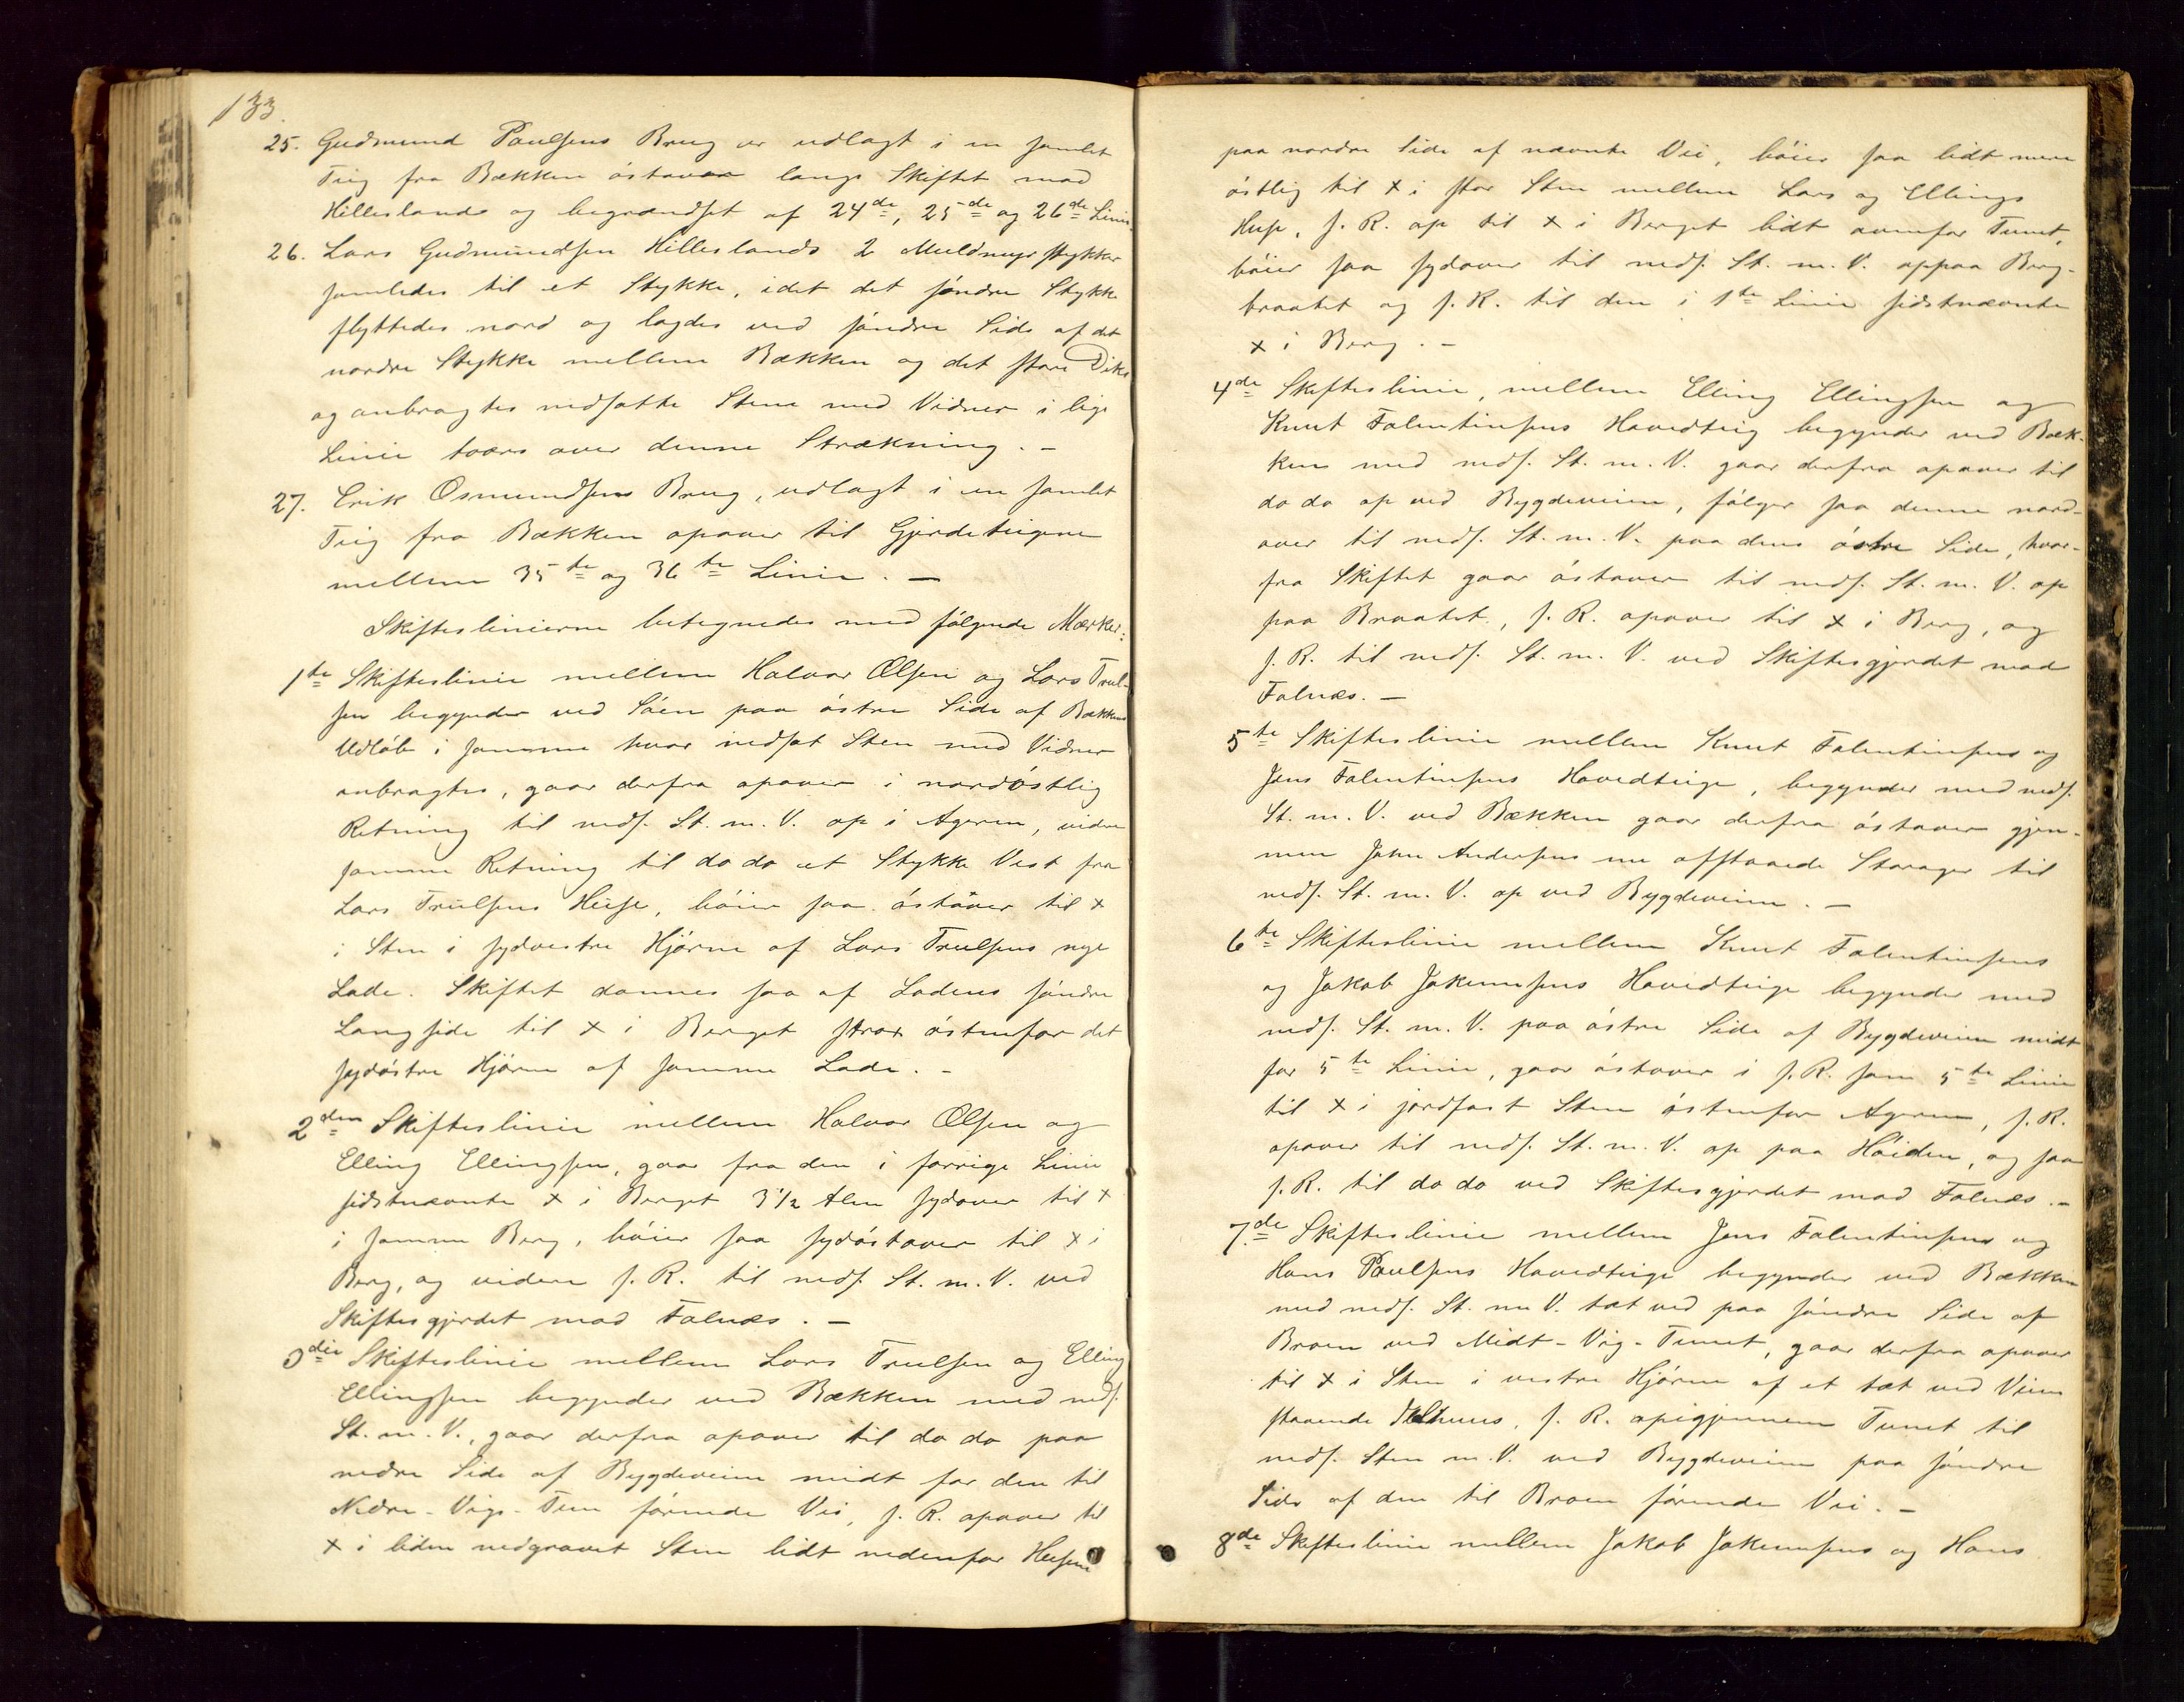 133.
25. Gudmund Paulsens Brug er udlagt i en samlet
Teig fra Bækken östover langs Skiftet mod
Hilleslands og begrændset af 24de, 25de og 26de Linie.
26. Lars Gudmundsen Hilleslands 2 Muldmyrstykker
samledes til et Stykke, idet det söndre Stykke
flyttedes nord og lagdes ved söndre Side af det
nordre Stykke mellem Bækken og det store Dike
og anbragtes nedsatte Stene med Vidner i lige
Linie tvars over denne Strækning. -
27. Erik Osmundsens Brug, udlagt i en samlet
Teig fra Bækken opover til Gjerdeteigene
mellem 35te og 36te Linie. -
Skifteslinierne betegnedes med fölgende Mærker:
1ste Skifteslinie mellem Halvor Olsen og Lars Trul-
sen begynder ved Söen paa östre Side af Bækkens
Udlöb i samme hvor nedsat Sten med Vidner
anbragtes, gaar derfra opover i nordöstlig
Retning til neds. St. m. V. op i Ageren, videre
samme Retning til do do et Stykke Vest fra
Lars Trulsens Huse, böier saa östover til x
i Sten i sydvestre Hjörne af Lars Trulsens nye
Lade. Skiftet dannes saa af Ladens söndre
Langside til x i Berget strax östenfor det
sydöstre Hjörne af samme Lade. -
2den Skifteslinie mellem Halvor Olsen og
Elling Ellingsen, gaar fra den i forrige Linie
sidstnævnte x i Berget 3 1/2 Alen sydover til x
i samme Berg, böier saa sydöstover til x i
Berg, og videre s. R. til neds. St. m. V. ved
Skiftesgjerdet mod Falnæs. -
3die Skifteslinie mellem Lars Trulsen og Elling
Ellingsen begynder ved Bækken med neds.
St. m. V., gaar derfra opover til do do paa
nedre Side af Bygdeveien midt for den til
Nedre-Vigs-Tun förende Vei, s. R. opover til
x i liden nedgravet Sten lidt nedenfor Husene
paa nordre Side af nævnte Vei, böier saa lidt mere
östlig til x i stor Sten mellem Lars og Ellings
Huse, s. R. op til x i Berget lidt ovenfor Tunet,
böier saa sydover til neds. St. m. V. oppaa Berg-
braatet og s. R. til den i 1ste Linie sidstnævnte
x i Berg. -
4de Skifteslinie, mellem Elling Ellingsen og
Knut Falentinsens Hovedteig begynder ved Bæk-
ken med neds. St. m. V. gaar derfra opover til
do do op ved Bygdeveien, fölger saa denne nord-
over til neds. St. m. V. paa dens östre Side, hvor-
fra Skiftet gaar östover til neds. St. m. V. op
paa Braatet, s. R. opover til x i Berg, og
s. R. til neds. St. m. V. ved Skiftesgjerdet mod
Falnæs. -
5te Skifteslinie mellem Knut Falentinsens og
Jens Falentinsens Hovedteige, begynder med neds.
St. m. V. ved Bækken gaar derfra östover gjen-
nem John Andersens nu afstaaede Storager til
neds. St. m. V. op ved Bygdeveien. -
6te Skifteslinie mellem Knut Falentinsens
og Jakob Jakumsens Hovedteige begynder med
neds. St. m. V. paa östre Side af Bygdeveien midt
for 5te Linie, gaar östover i s. R. som 5te Linie
til x i jordfast Sten östenfor Ageren, s. R.
opover til neds. St. m. V. op paa Höiden, og saa
s. R. til do do ved Skiftesgjerdet mod Falnæs. -
7de Skifteslinie mellem Jens Falentinsens og
Hans Paulsens Hovedteige begynder ved Bækken
med neds. St. m. V. tæt ved paa söndre Side af
Broen ved Midt-Vig-Tunet, gaar derfra opover
til x i Sten i vestre Hjörne af et tæt ved Veien
staaende Ildhuus, s. R. opigjennem Tunet til
neds. Sten m. V. ved Bygdeveien paa söndre
Side af den til Broen förende Vei. -
8de Skifteslinie mellem Jakob Jakumsens og Hans